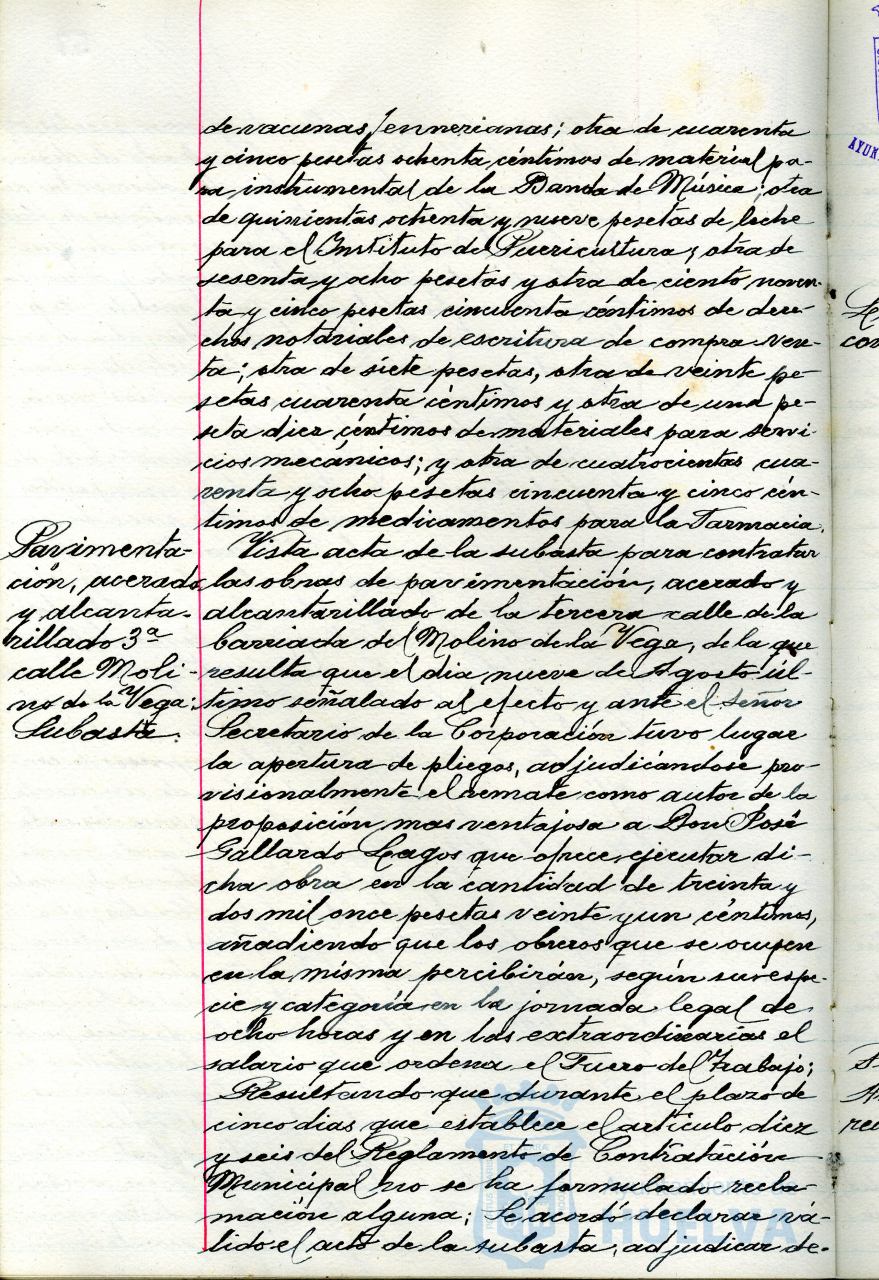 de vacunas jennerianas; otra de cuarenta
y cinco pesetas ochenta céntimos de material pa-
ra instrumental de la Banda de Música; otra
de quinientas ochenta y nueve pesetas de leche
para el Instituto de Puericultura; otra de
sesenta y ocho pesetas y otra de ciento noven-
ta y cinco pesetas cincuenta céntimos de dere-
chos notariales de escritura de compra-ven-
ta; otra de siete pesetas, otra de veinte pe-
setas cuarenta céntimos y otra de una pe-
seta diez céntimos de materiales para servi-
cios mecánicos; y otra de cuatrocientas cua-
renta y ocho pesetas cincuenta y cinco cén-
timos de medicamentos para la Farmacia.
Pavimenta-
ción, acerado
y alcanta-
rillado 3ª
calle Moli-
no de la Vega:
Subasta.
Vista acta de la subasta para contratar
las obras de pavimentación, acerado y
alcantarillado de la tercera calle de la
barriada del Molino de la Vega, de la que
resulta que el dia nueve de Agosto úl-
timo señalado al efecto y ante el señor
Secretario de la Corporación tuvo lugar
la apertura de pliegos, adjudicándose pro-
visionalmente el remate como autor de la
proposición mas ventajosa a Don José
Gallardo Lagos que ofrece ejecutar di-
cha obra en la cantidad de treinta y
dos mil once pesetas veinte y un céntimos,
añadiendo que los obreros que se ocupen
en la misma percibirán, según su espe-
cie y categoría en la jornada legal de
ocho horas y en las extraordinarias el
salario que ordena el Fuero del Trabajo;
Resultando que durante el plazo de
cinco dias que establece el artículo diez
y seis del Reglamento de Contratación
Municipal no se ha formulado recla-
mación alguna; Se acordó declarar vá-
lido el acto de la subasta, adjudicar de-
Ayuntamiento de
HUELVA